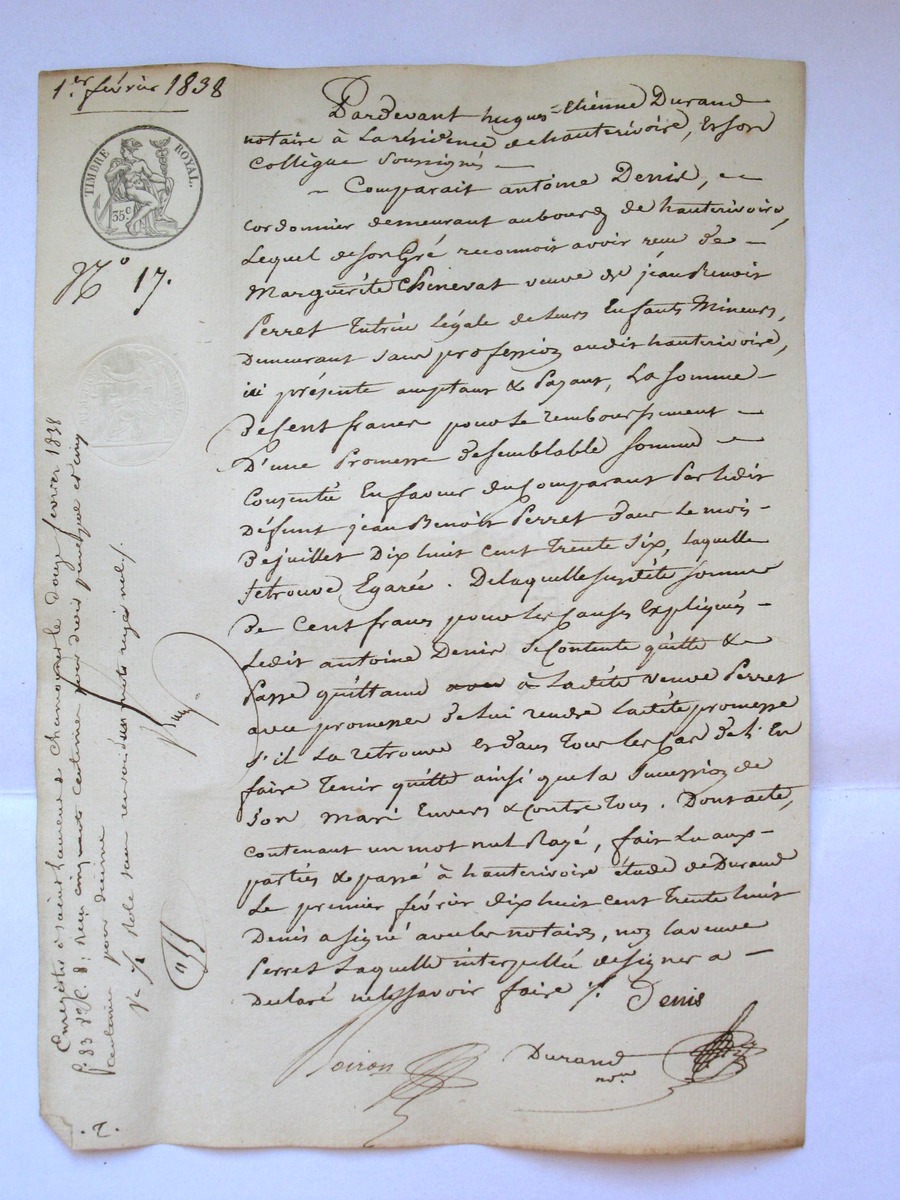 1.er février 1838
TIMBRE ROYAL.
35c.
N° 17.
Pardevant hugues-Etiénne Durand
notaire à La résidence de hauterivoire, Et son
Collègue Soussignés —
– Comparait antoine Denis,
cordonnier demeurant au bourg de hauterivoire,
Lequel de son Gré reconnoit avoir reçu de –
Marguérite Chenevat veuve de jean Benoit
Perret Tutrice Légale de leurs Enfants Mineurs,
Demeurant sans profession audit hauterivoire,
ici présente acceptant & Payant, La Somme –
De Cent francs pour le remboursement –
D'une Promesse de semblable somme –
Consentie En faveur du Comparant Par Ledit
Défunt jean Benoit Perret dans Le mois –
De juillet Dix huit cent trente Six, laquelle
se trouve Egarée. De laquelle susdite somme
De Cent francs pour les Causes Expliqués –
Ledit antoine Denis se Contente quitte &
Passe quittance à Ladite veuve Perret
avec promesse de lui rendre ladite promesse
s'il La retrouve et dans tous les Cas de l'En
faire Tenir quitte ainsi que la Succession de
son Mari Envers & Contre Tous. Dont acte,
contenant un mot nul Rayé, fait Lu aux –
parties & passé à hauterivoire étude de Durand
Le premier février dix huit cent trente huit
Denis a signé avec les notaires, non la veuve
Perret Laquelle interpellée de signer a –
Déclaré ne le savoir faire ./.
Denis
Boiron
Durand
nore
Enregistré à saint Laurent de Chamousset le douze février 1838
f. 83 Rc. C. 8: reçu cinquante centimes pour droit principal et cinq
centimes pour décime
. 2 .